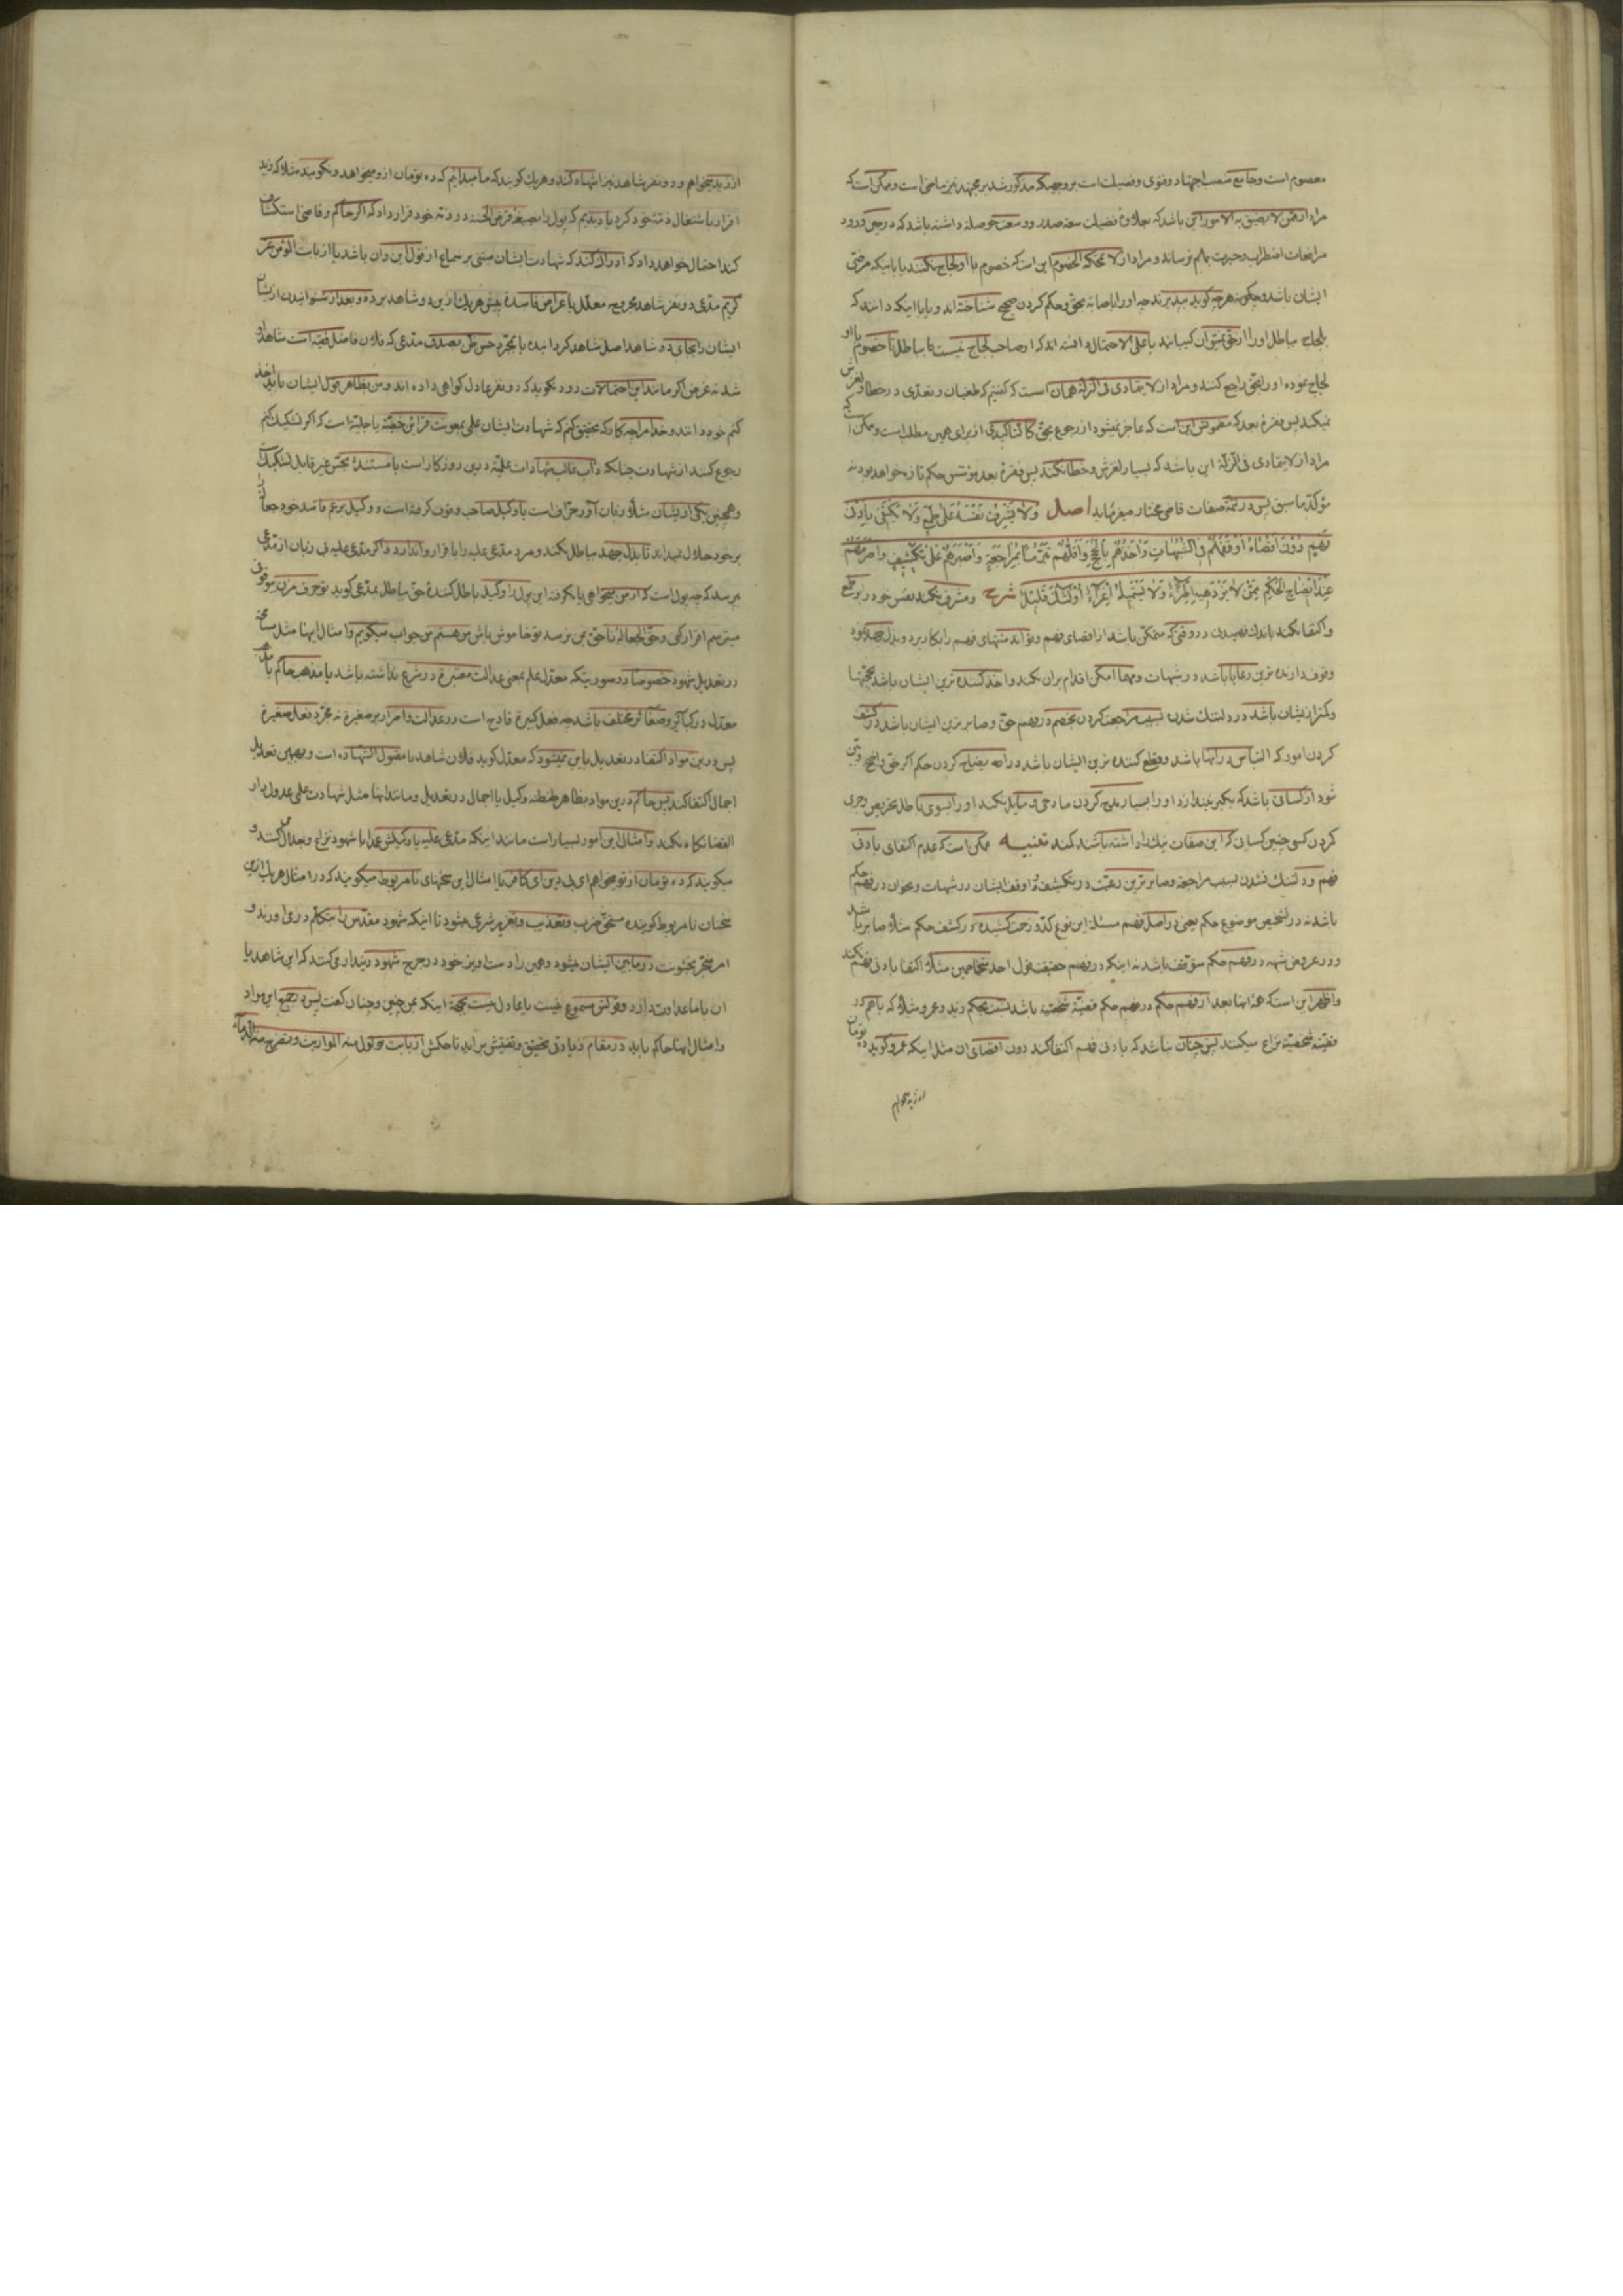 معصوم است و جامع منصب اجتهاد و فتوی و فضیلت است بر وجهیکه مذکور شد بر مجتهد نیز قاضی است و ممکن است که
مراد از ممن لا تضیق به الامور این باشد که بعلاوهٔ فضیلت سعهٔ صدر و وسعت حوصله داشته باشد که در حین ورود
مرافعات اضطراب و حیرت بهم نرساند و مراد از لا تمحکه الخصوم این است که خصوم با او لجاج نکنند یا باینکه مرضی
ایشان باشد و چگونه هرچه گوید بپذیرند چه او را باصابهٔ بحق و حکم کردن صحیح شناخته اند و یا باینکه دانند که
بلجاج بباطل او را از حق نمیتوان
لجاج نموده او را بحق راجع کنند و مراد از لا یتمادی فی الزلة همان است که گفتیم که طغیان و تعدی در خطا و لغزش
نمیکند پس فقرهٔ بعد که مضمونش این است که عاجز نمیشود از رجوع بحق کانّه تاکیدی از برای همین مطلب است و ممکن است که
مراد از لا یتمادی فی الزلة این باشد که بسیار لغزش و خطا نکند پس فقرهٔ بعد مؤسس حکم تازه خواهد بود نه
مؤکد ما سبق پس در تتمهٔ صفات قاضی مختار میفرماید اصل وَلَا تُشْرِفُ نَفْسُهُ عَلَى طَمَعٍ وَلَا يَكْتَفِي بِأَدْنَى
فَهْمٍ دُونَ أَقْصَاهُ أَوْقَفَهُمْ فِي الشُّبُهَاتِ وَآخَذَهُمْ بِالْحُجَجِ وَأَقَلَّهُمْ تَبَرُّمًا بِمُرَاجَعَةِ وَأَصْبَرَهُمْ عَلَى تَكَشُّفِ وَأَصْرَمَهُمْ
عِنْدَ اتِّضَاحِ الْحُكْمِ مِمَّنْ لَا يَزْدَهِيهِ إِطْرَاءٌ وَلَا يَسْتَمِيلُهُ إِغْرَاءٌ أُولٰئِكَ قَلِيلٌ شرح و مشرف نکند نفس خود را بر طمع
و اکتفا نکند باندک فهمیدن در وقتی که متمکن باشد از اقصای فهم و تواند منتهای فهم را بکار برد و بذل جهد نمود
وقوف دارنده ترین رعایا باشد در شبهات و مهما امکن اقدام بران نکند و اخذ کننده ترین ایشان باشد بحجتها
و کمتر از ایشان باشد در دلتنگ شدن بسبب مراجعت کردن بخصم در فهم حق و صابرترین ایشان باشد در کشف
کردن امور که التباس در آنها باشد و قطع کننده ترین ایشان باشد در امر بعد اتضاح کردن حکم اگر حق واضح و بیّن
شود از کسانی باشد که بتکبر نیندازد او را بسیار مدح کردن مادحی و مایل نکند او را بسوی باطل تحریص و جری
کردن کسی چنین کسان که این صفات نیک را داشته باشند کمند تنبیه ممکن است که عدم اکتفای بادنی
فهم و دلتنگ نشدن بسبب مراجعه و صابرترین رعیت در تکشف و اوقف ایشان در شبهات و نحوان در فهم حکم
باشد نه در تشخیص موضوع حکم یعنی در اصل فهم مسئله این نوع کد و زحمت کشیده و در کشف حکم مثلاً صابر باشد
و در عروض شبهه در فهم حکم متوقف باشد نه اینکه در فهم حقیقت قول احد متخاصمین مثلاً اکتفا بادنی فهم نکند
و اظهر این است که همهٔ اینها بعد از فهم حکم در فهم حکم قضیهٔ شخصیه باشد نسبت بحکم زید و عمرو مثلاً که با هم در
قضیهٔ شخصیه نزاع میکنند پس چنان نباشد که بادنی فهم اکتفا کند دون اقصای ان مثل اینکه عمرو گوید ده تومان
از زید میخواهم
از زید میخواهم و دو نفر شاهد نیز اشهاد کند و هریک گویند که ما میدانیم که ده تومان از و میخواهد و نگویند مثلاً که زید
اقرار باشتغال ذمهٔ خود کرد یا دیدیم که پول را بصیغهٔ قرض الحسنه در ذمهٔ خود قرار داد که اگر حاکم و قاضی استکشاف
کند احتمال خواهد داد که ادراک کند که شهادت ایشان مبتنی بر سماع از قول این و آن باشد یا از بابت المؤمن غر
کریم مدعی دو نفر شاهد مجروح معدل باغراض فاسده پیش هریک ازین دو شاهد برده و بعد از شنوانیدن از ایشان
ایشان را بجای دو شاهد اصل شاهد گردانیده یا بمجرد حسن ظن بصدق مدعی که فلان فاضل فقیه است شاهد او
شده غرض اگر مانند این احتمالات رود نگوید که دو نفر عادل گواهی داده اند و من بظاهر قول ایشان باید اخذ
کنم خود دانند و خدا مرا چه کار که تحقیق کنم که شهادت ایشان علمی بمعونت قرائن خفیه یا جلیه است که اگر تشکیک کنم
رجوع کنند از شهادت چنانکه دأب غالب شهادات علمیه درین روزگار است یا مستند بحس غیر قابل لتشکیک
و همچنین یکی از ایشان مثلاً زبان آور حراف است یا وکیل صاحب وقوف گرفته است و وکیل بزعم فاسد خود جعاله را
بر خود حلال نمیداند تا بذل جهد بباطل نکند و مرد مدعی علیه را باقرار واندارد و اگر مدعی علیه بی زبان از مدعی
بپرسد که چه پول است که از من میخواهی یا نگرفته این پول را وکیل باطل کنندهٔ حق بباطل بمدعی گوید تو حرف مزن
میترسم اقرار کنی و حق الجعالهٔ ما حق من نرسد تو خاموش باش من هستم من جواب میگویم و امثال اینها مثل مسامحه
در تعدیل شهود خصوصاً در صورتیکه معدل علم بمعنی عدالت معتبره در شرع نداشته باشد یا مذهب حاکم با مذهب
معدل در کبایر و صغائر مختلف باشد چه فعل کبیره قادح است در عدالت و اصرار بر صغیره نه مجرد فعل صغیره
پس درین مواد اکتفا در تعدیل باین نمیشود که معدل گوید فلان شاهد ما مقبول الشهاده است و بهمین تعدیل
اجمال اکتفا کند پس حاکم درین مواد بظاهر طنطنه وکیل یا اجمال در تعدیل و مانند اینها مثل شهادت علمی عدول دار
القضا نگاه نکند و امثال این امور بسیار است مانند اینکه مدعی علیه یا وکیلش عمداً با شهود نزاع و جدال کنند و
میگویند که ده تومان از تو میخواهم ای بی دین ای کافر یا امثال این سخنهای نامربوط میگویند که در امثال هریک ازین
سخنان نامربوط گوینده مستحق ضرب و تعذیب و تعزیر شرعی میشود تا اینکه شهود مقدس را بتکلم در می آورند و
امر منجر بخشونت در مابین ایشان میشود و همین را دست آویز خود در جرح شهود دیندار میکنند که این شاهد یا
ان با ما عداوت دارد و قولش مسموع نیست یا عادل نیست بجهة اینکه بمن چنین و چنان گفت پس در جمیع این مواد
و امثال اینها حاکم باید در مقام زیادتی تحقیق و تفتیش براید تا حکمش از بابت تولول منه المواریث و تصرخ منه الدماء